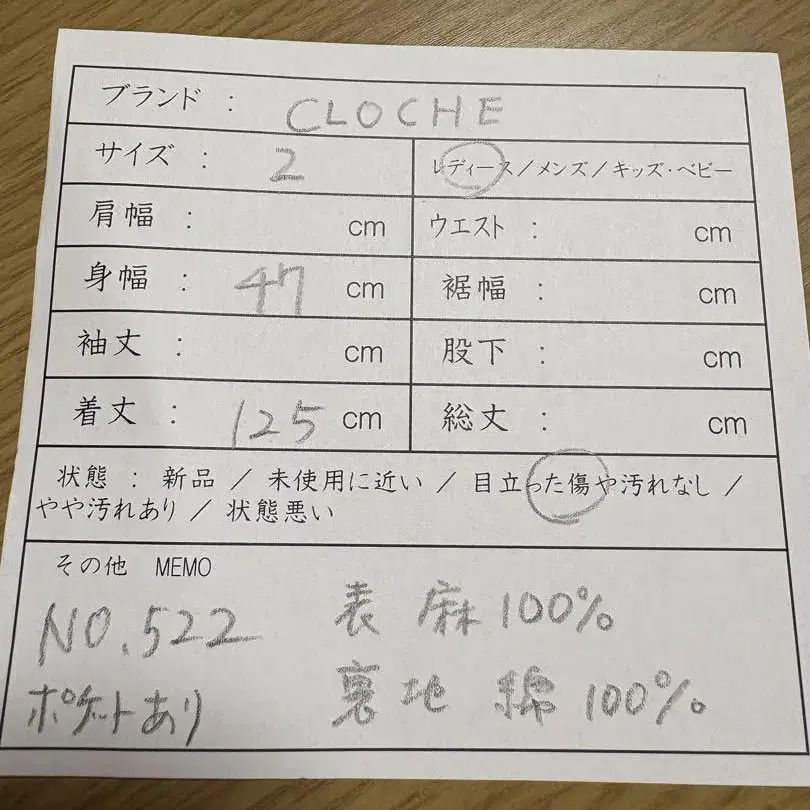 ブランド : CLOCHE
サイズ : 2 レディース/メンズ/キッズ・ベビー
肩幅 : cm ウエスト : cm
身幅 : 47 cm 裾幅 : cm
袖丈 : cm 股下 : cm
着丈 : 125 cm 総丈 : cm
状態 : 新品 / 未使用に近い / 目立った傷や汚れなし /
やや汚れあり / 状態悪い
その他 MEMO
NO.522 表 麻 100%
ポケットあり 裏地 綿 100%